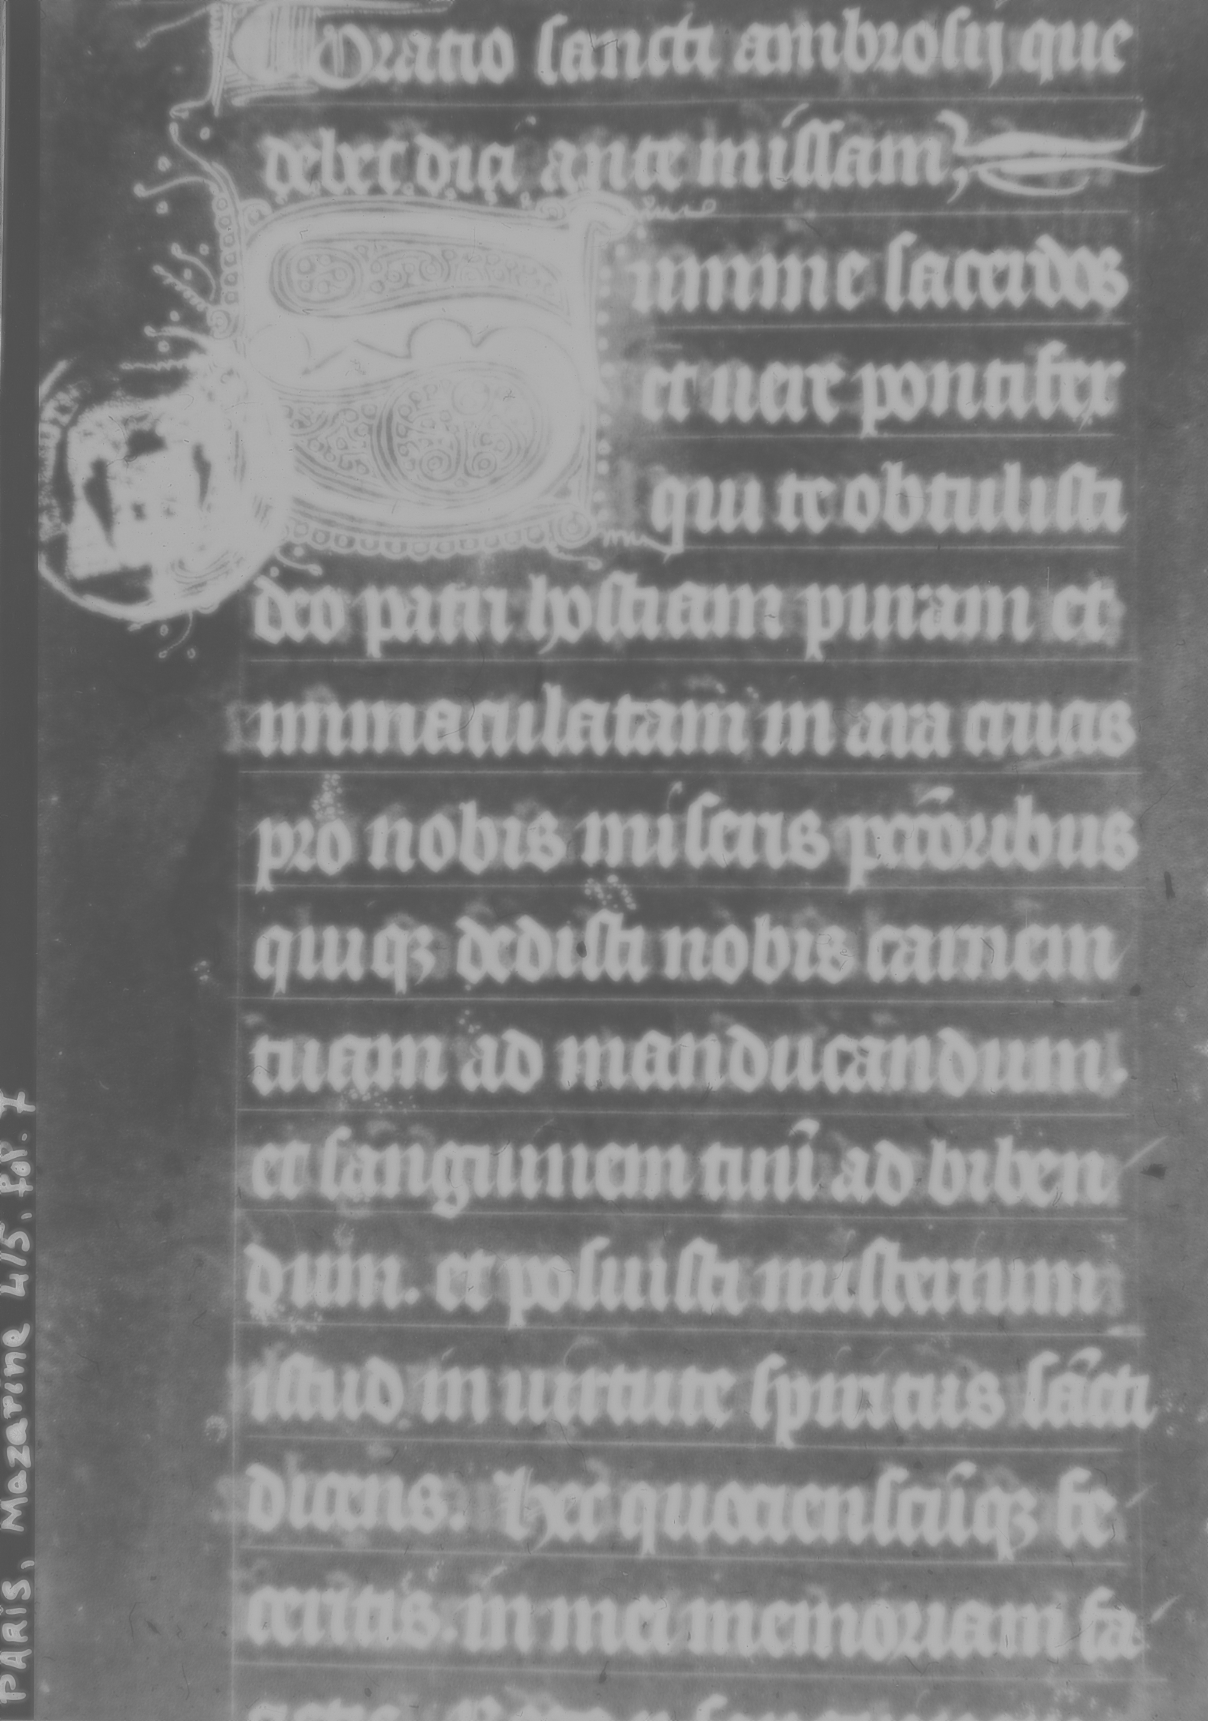 Oratio sancti ambrosij que
debet dici ante missam,
Summe sacerdos
et uere pontifex
qui te obtulisti
deo patri hostiam puram et
immaculatam in ara crucis
pro nobis miseris pctōribus
quiqꝫ dedisti nobis carnem
tuam ad manducandum.
et sanguinem tuū ad biben
dum. et posuisti misterium
istud in uirtute spiritus sācti
dicens. Hec quociensciūqꝫ fe
ceritis. in mei memoriam fa
PARIS, Mazarine 415, fol. 7